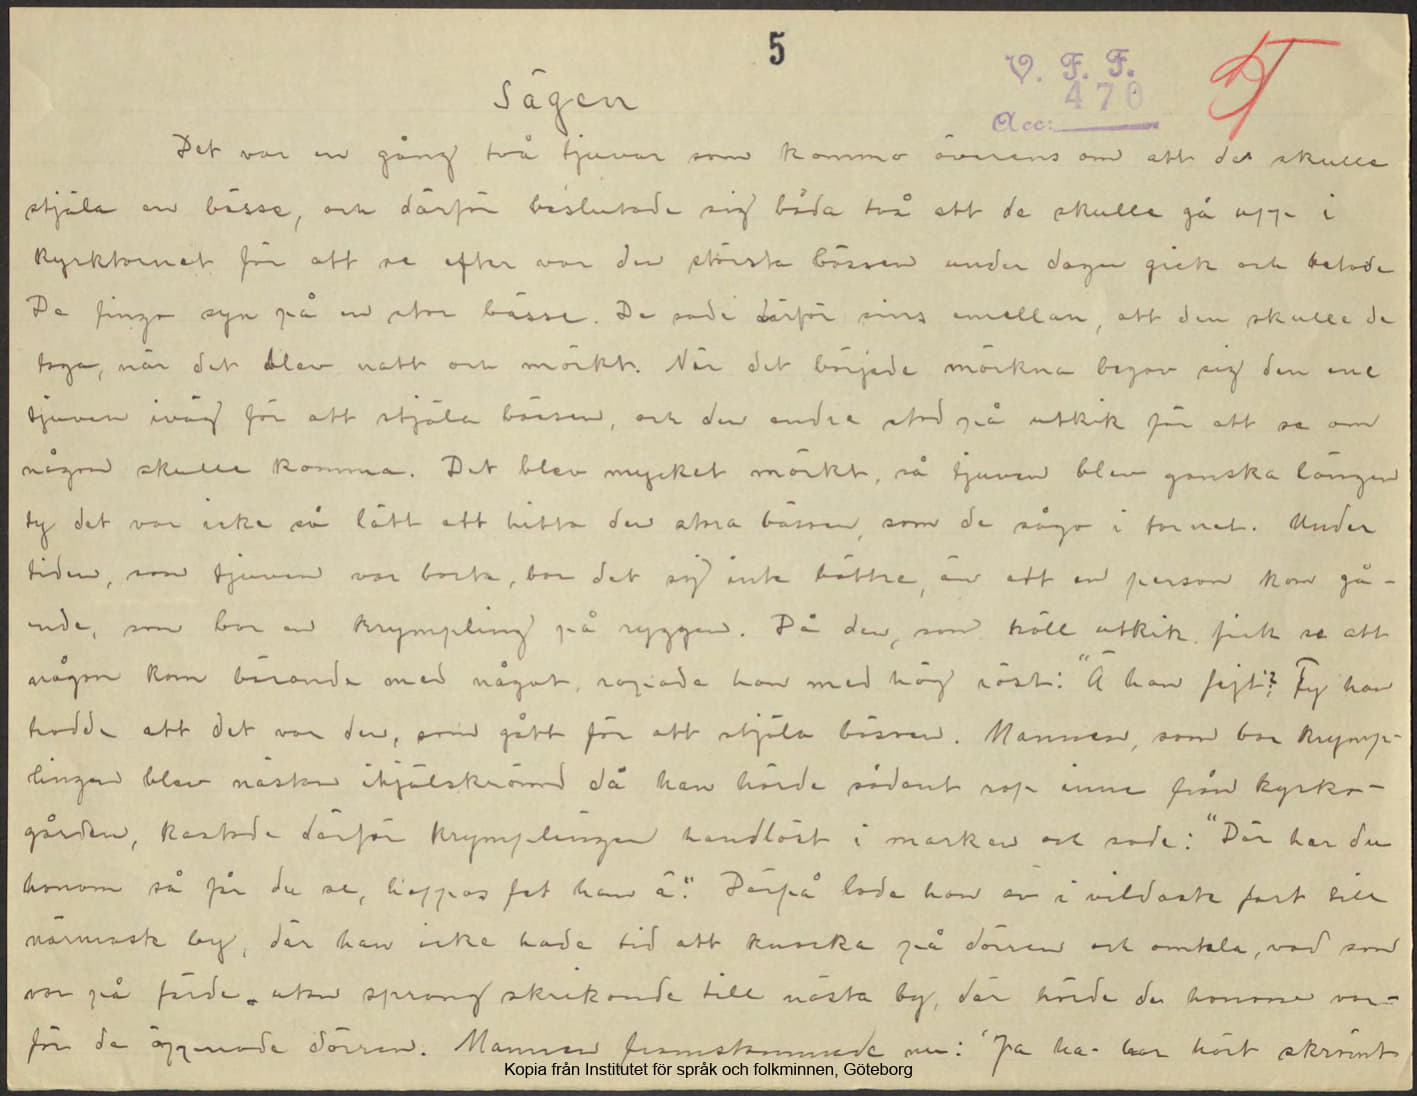 5
V. F. F.
470
Acc:
Sägen
Det var en gång två tjuvar som kommo överens om att de skulle
stjäla en bässe, och därför beslutade sig båda två att de skulle gå upp i
kyrktornet för att se efter var den största bässen under dagen gick och betade
De fingo syn på en stor bässe. De sade därför sins emellan, att den skulle de
taga, när det blev natt och mörkt. När det började mörkna begav sig den ene
tjuven iväg för att stjäla bässen, och den andre stod på utkik för att se om
någon skulle komma. Det blev mycket mörkt, så tjuven blev ganska längen
ty det var icke så lätt att hitta den stora bässen, som de sågo i tornet. Under
tiden, som tjuven var borta, bar det sig inte bättre, än att en person kom gå-
ende, som bar en krympling på ryggen. Då den, som höll utkik fick se att
någon kom bärande med något, ropade han med hög röst: "Ä han fejt"? Ty han
trodde att det var den, som gått för att stjäla bässen. Mannen, som bar krymp-
lingen blev nästan ihjälskrämd då han hörde sådant rop inne från kyrko-
gården, kastade därför krymplingen handlöst i marken och sade: "Där har du
honom så får du se, hoppas fet han ä". Därpå lade han av i vildaste fart till
närmaste by, där han icke hade tid att knacka på dörren och omtala, vad som
var på färde, utan sprang skrikande till nästa by, där hörde de honom var-
för de öppnade dörren. Mannen framstammade nu: "Ja ha har hört skrömt
Kopia från Institutet för språk och folkminnen, Göteborg